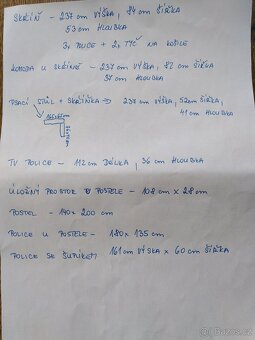 SKŘÍŇ - 237 cm VÝŠKA, 84 cm ŠÍŘKA
53 cm HLOUBKA
3x POLICE + 2x TYČ NA KOŠILE
KOMODA U SKŘÍNĚ - 237 cm VÝŠKA, 82 cm ŠÍŘKA
37 cm HLOUBKA
PSACÍ STŮL + SKŘÍŇKA → 237 cm VÝŠKA, 52 cm ŠÍŘKA,
41 cm HLOUBKA
TV POLICE - 112 cm DÉLKA, 36 cm HLOUBKA
ÚLOŽNÝ PROSTOR U POSTELE - 108 cm x 28 cm
POSTEL - 140 x 200 cm
POLICE U POSTELE - 180 x 135 cm
POLICE SE ŠUPLÍKEM 161 cm VÝŠKA x 60 cm ŠÍŘKA
Bazoš.cz